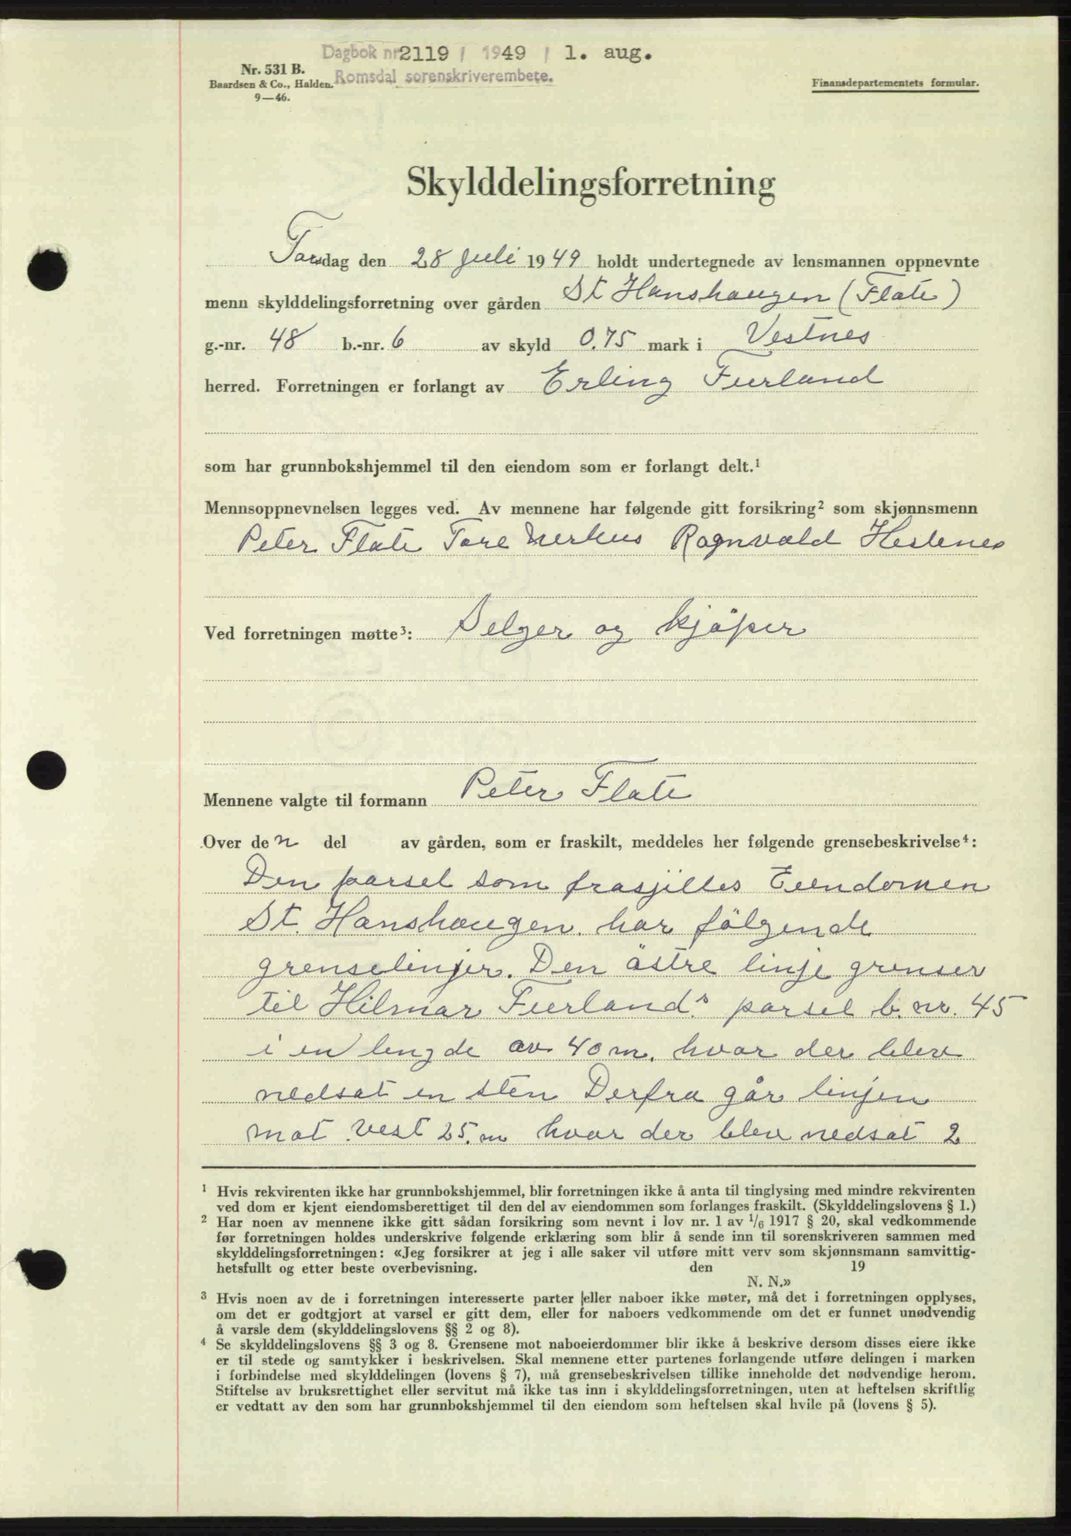 Dagbok nr 2119 / 1949 / 1. aug.
Romsdal sorenskriverembete.
Nr. 531 B.
Baardsen & Co., Halden.
9—46.
Finansdepartementets formular.
Skylddelingsforretning
Torsdag den 28 juli 1949 holdt undertegnede av lensmannen oppnevnte
menn skylddelingsforretning over gården St Hanshaugen (Flate)
g.-nr. 48 b.-nr. 6 av skyld 0.75 mark i Vestnes
herred. Forretningen er forlangt av Erling Furland
som har grunnbokshjemmel til den eiendom som er forlangt delt.¹
Mennsoppnevnelsen legges ved. Av mennene har følgende gitt forsikring² som skjønnsmenn
Peter Flate Tore Nerhus Ragnvald Hestenes
Ved forretningen møtte³: Selger og kjöper
Mennene valgte til formann Peter Flate
Over de n del av gården, som er fraskilt, meddeles her følgende grensebeskrivelse⁴:
Den parsel som frasjilles Eiendomen
St. Hanshaugen. har fölgende
grenselinjer. Den östre linje grenser
til Hilmar Furlands parsel b. nr. 45
i en lengde av 40 m. hvor der blev
nedsat en sten Derfra går linjen
mot vest 25. m hvor der blev nedsat 2
¹ Hvis rekvirenten ikke har grunnbokshjemmel, blir forretningen ikke å anta til tinglysing med mindre rekvirenten
ved dom er kjent eiendomsberettiget til den del av eiendommen som forlanges fraskilt. (Skylddelingslovens § 1.)
² Har noen av mennene ikke gitt sådan forsikring som nevnt i lov nr. 1 av ¹/₆ 1917 § 20, skal vedkommende
før forretningen holdes underskrive følgende erklæring som blir å sende inn til sorenskriveren sammen med
skylddelingsforretningen: «Jeg forsikrer at jeg i alle saker vil utføre mitt verv som skjønnsmann samvittig-
hetsfullt og etter beste overbevisning. den 19
N. N.»
³ Hvis noen av de i forretningen interesserte parter eller naboer ikke møter, må det i forretningen opplyses,
om det er godtgjort at varsel er gitt dem, eller for naboers vedkommende om det er funnet unødvendig
å varsle dem (skylddelingslovens §§ 2 og 8).
⁴ Se skylddelingslovens §§ 3 og 8. Grensene mot naboeierdommer blir ikke å beskrive dersom disses eiere ikke
er til stede og samtykker i beskrivelsen. Skal mennene etter partenes forlangende utføre delingen i marken
i forbindelse med skylddelingen (lovens § 7), må grensebeskrivelsen tillike inneholde det nødvendige herom.
Stiftelse av bruksrettighet eller servitut må ikke tas inn i skylddelingsforretningen, uten at heftelsen skriftlig
er vedtatt av den som har grunnbokshjemmel til den eiendom som heftelsen skal hvile på (lovens § 5).